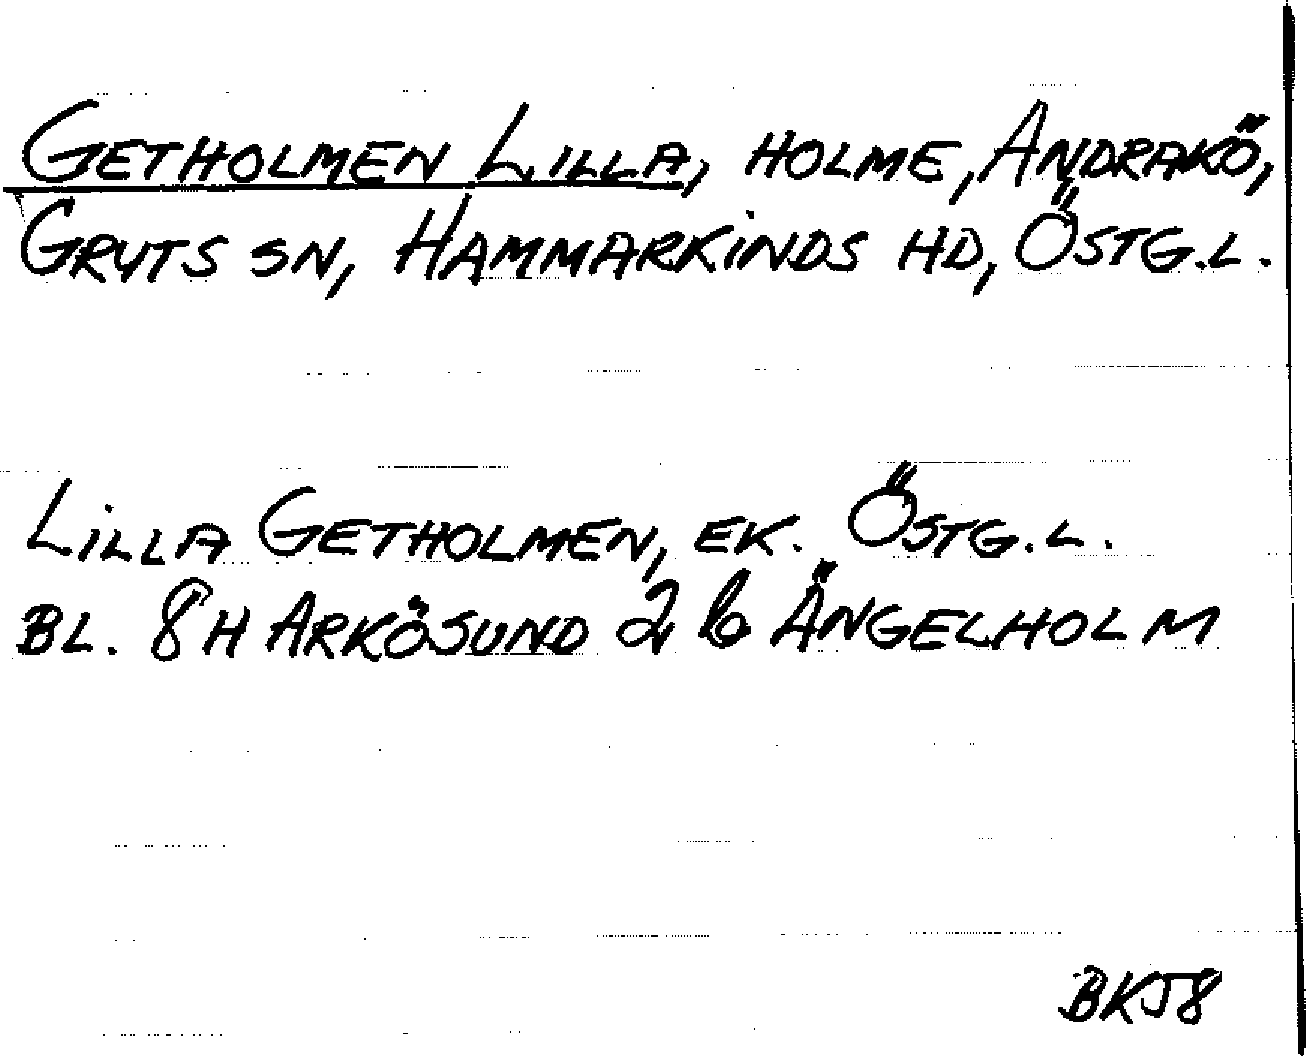 GETHOLMEN LILLA, HOLME, ANDRAKÖ,
GRYTS SN, HAMMARKINDS HD, ÖSTG.L.
LILLA GETHOLMEN, EK. ÖSTG.L.
BL. 8H ARKÖSUND 2 b ÄNGELHOLM
BKJ8